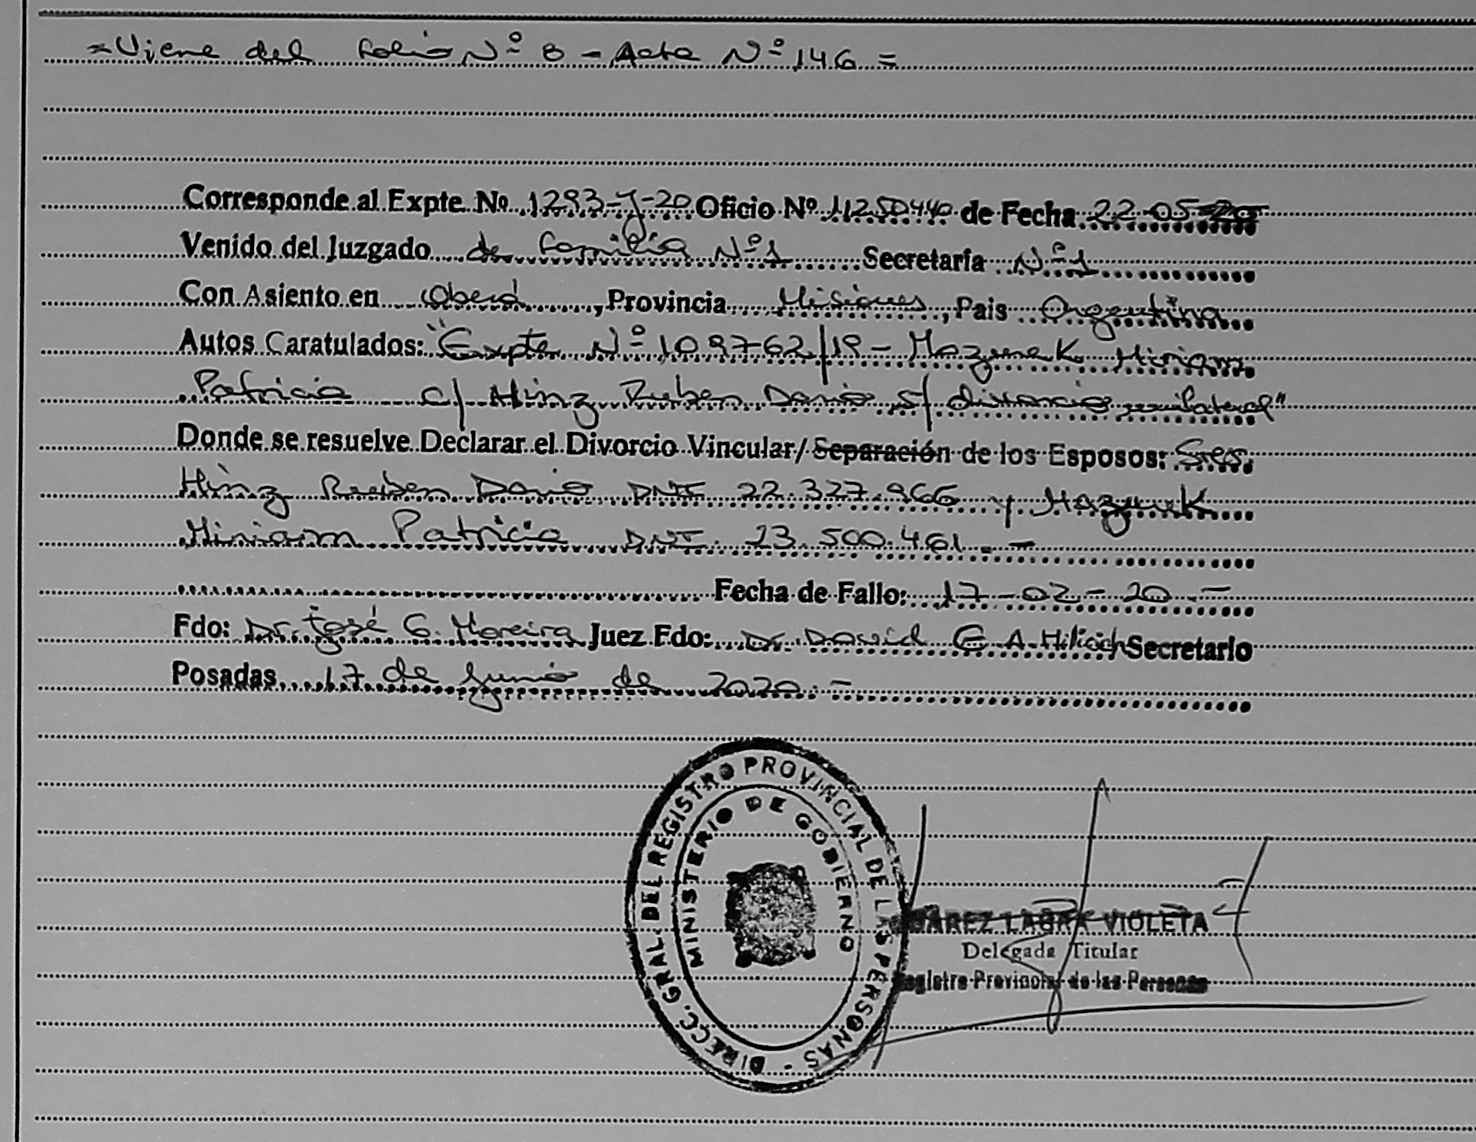 =Viene del folio Nº 8 - Acta Nº 146 =
Corresponde al Expte Nº 1293-J-20 Oficio Nº 11250440 de Fecha 22-05-20
Venido del Juzgado de familia Nº1 Secretaría Nº1
Con Asiento en Oberá, Provincia Misiones, Pais Argentina
Autos Caratulados: "Expte Nº 109762/19 - Mazurek Miriam
Patricia c/ Hinz Ruben Dario s/ divorcio unilateral"
Donde se resuelve Declarar el Divorcio Vincular/ Separación de los Esposos: Sres.
Hinz Ruben Dario DNI 22.327.966 y Mazurek
Miriam Patricia DNI. 23.500.461.-
Fecha de Fallo: 17-02-20.-
Fdo: Dr. José G. Moreira Juez Fdo: Dr. David E. A. Secretario
Posadas, 17 de Junio de 2020.-
DIRECC. GRAL. DEL REGISTRO PROVINCIAL DE LAS PERSONAS -
MINISTERIO DE GOBIERNO
VIOLETA
Delegada Titular
Registro Provincial de las Personas